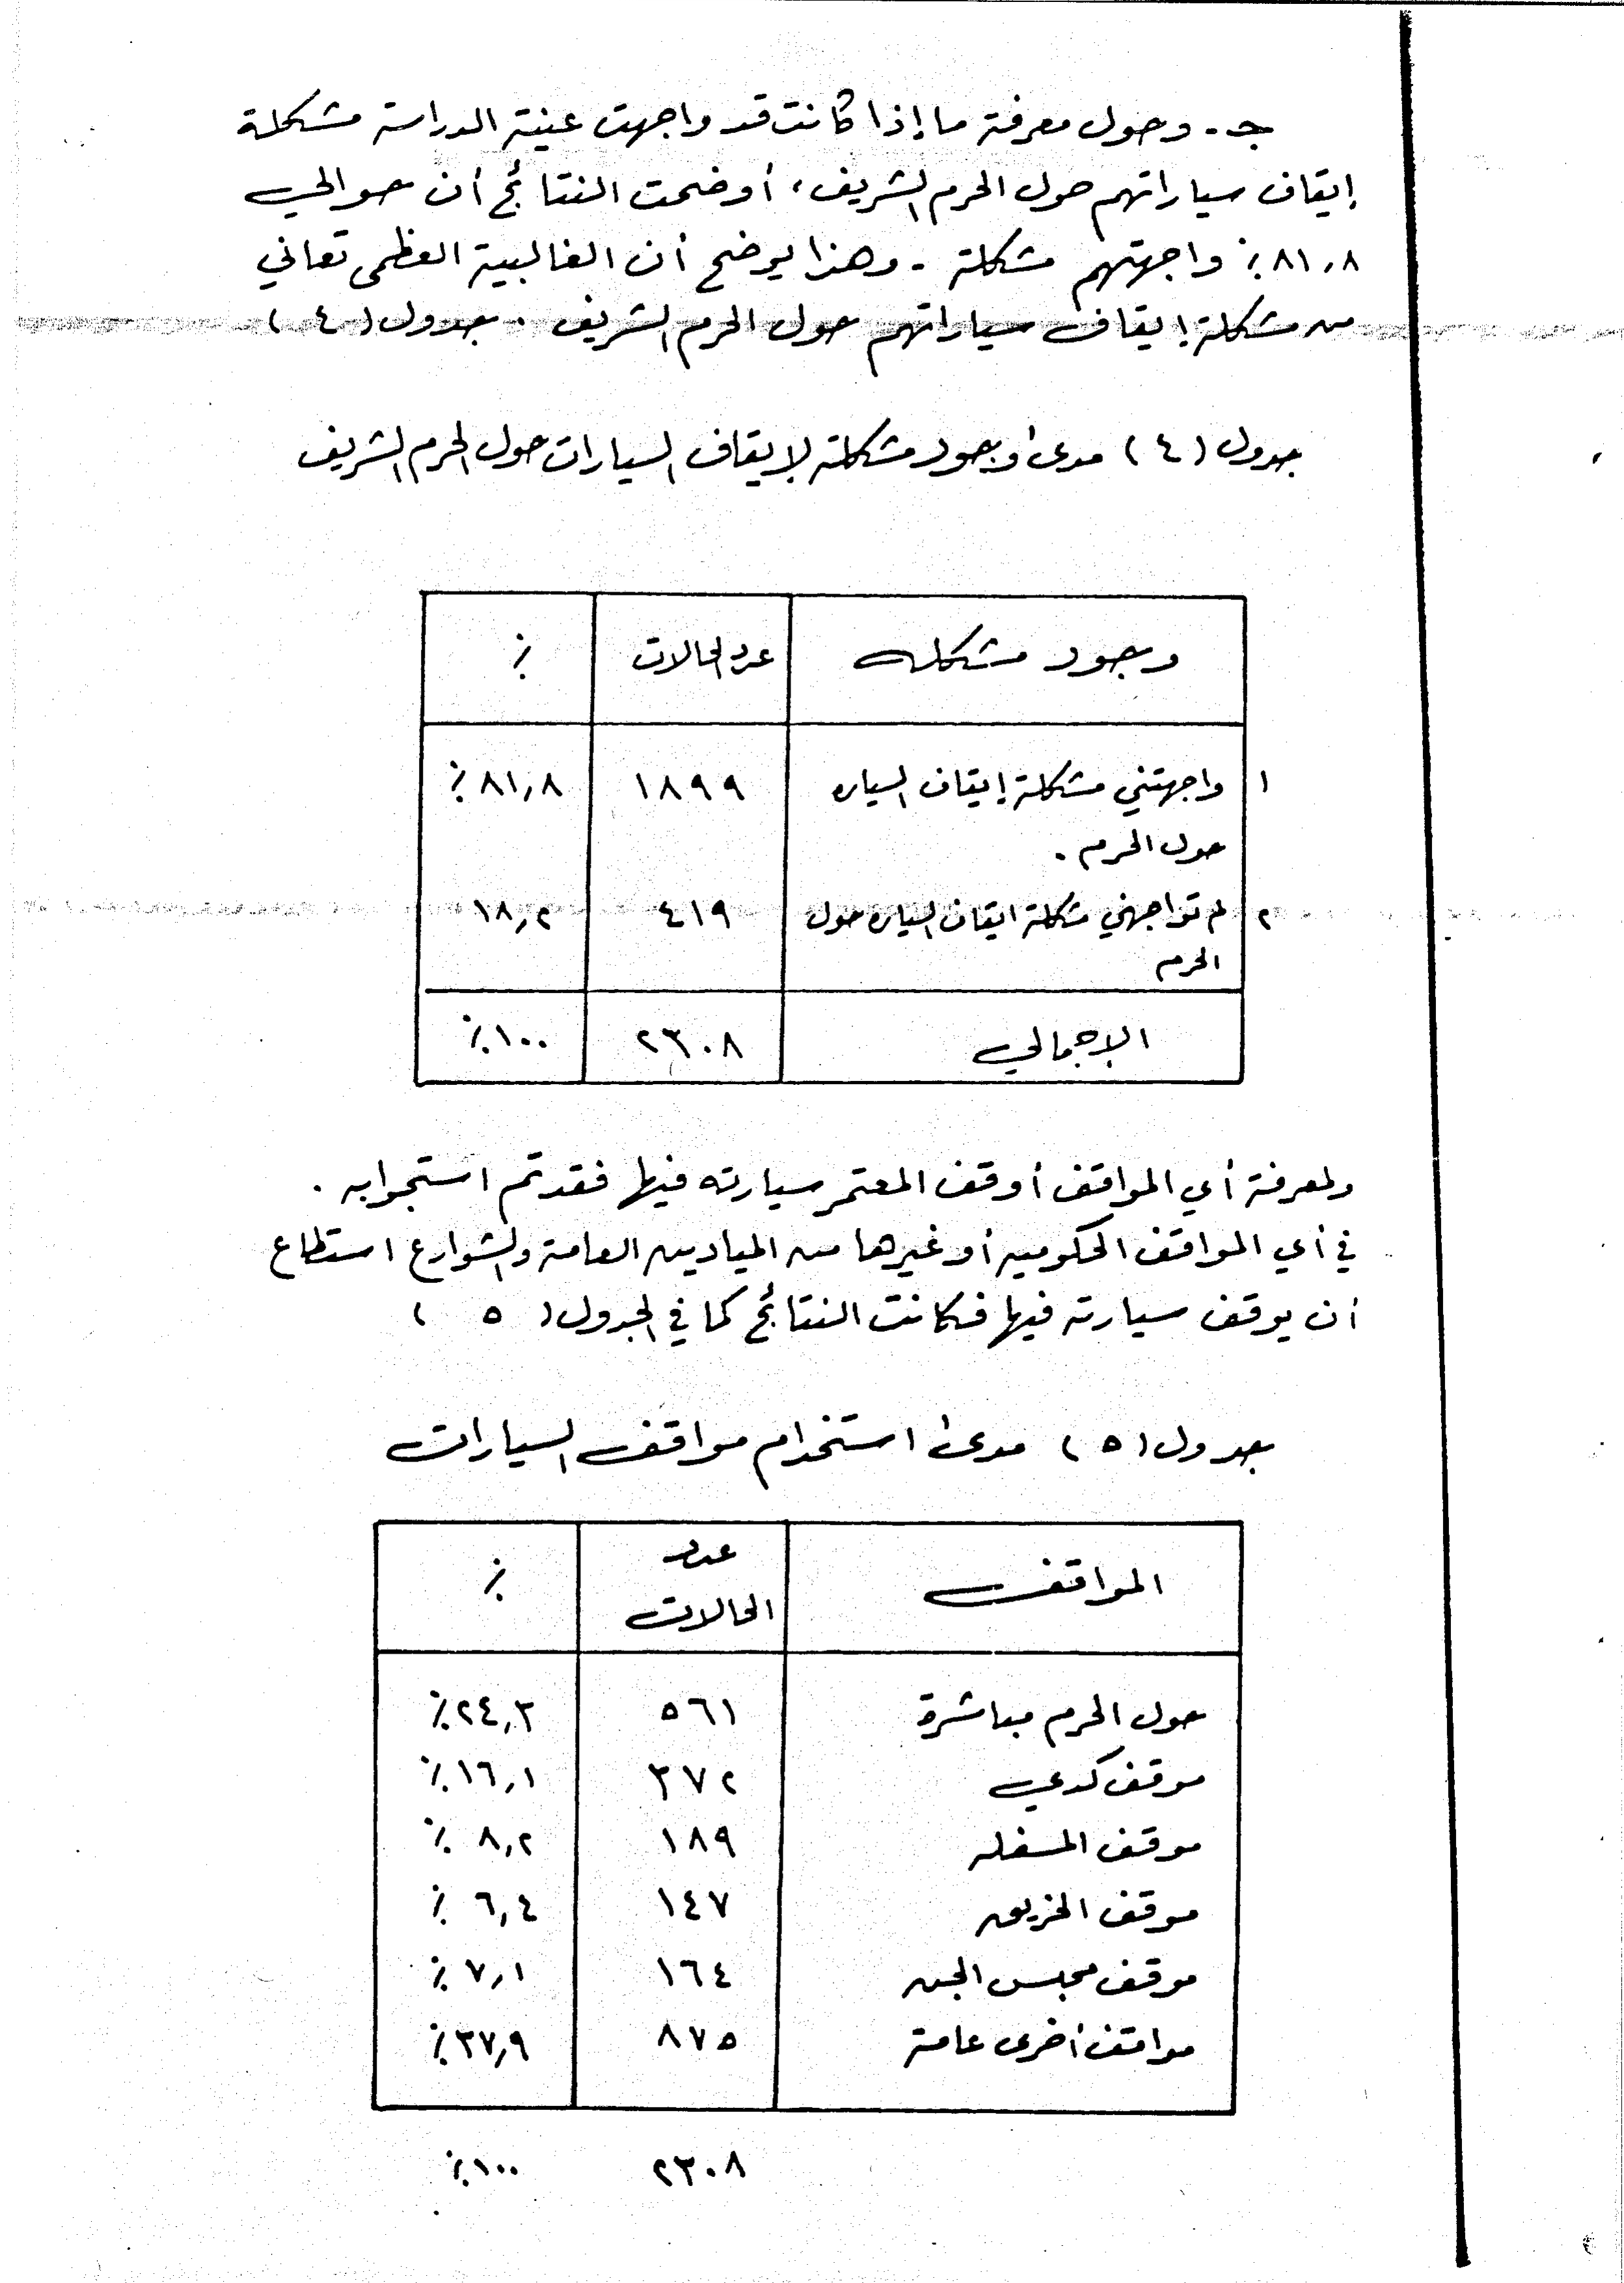 جـ - وحول معرفة ما إذا كانت قد واجهت عينة الدراسة مشكلة
إيقاف سياراتهم حول الحرم الشريف ، أوضحت النتائج أن حوالي
٨١,٨ ٪ واجهتهم مشكلة - وهذا يوضح أن الغالبية العظمى تعاني
من مشكلة إيقاف سياراتهم حول الحرم الشريف . جدول ( ٤ )
جدول ( ٤ ) مدى وجود مشكلة لإيقاف السيارات حول الحرم الشريف
وجود مشكله عدد الحالات ٪
١ واجهتني مشكلة إيقاف السياره ١٨٩٩ ٨١,٨ ٪
حول الحرم .
٢ لم تواجهني مشكلة ايقاف السياره حول ٤١٩ ١٨,٢
الحرم
الإجمالي ٢٣٠٨ ١٠٠ ٪
ولمعرفة أي المواقف أوقف المعتمر سيارته فيها فقد تم استجوابه .
في أي المواقف الحكوميه أو غيرها من الميادين العامة والشوارع استطاع
أن يوقف سيارته فيها فكانت النتائج كما في الجدول ( ٥ )
جدول ( ٥ ) مدى استخدام مواقف السيارات
المواقف عدد الحالات ٪
حول الحرم مباشرة ٥٦١ ٢٤,٣ ٪
موقف كدي ٣٧٢ ١٦,١ ٪
موقف المسفله ١٨٩ ٨,٢ ٪
موقف الخريق ١٤٧ ٦,٤ ٪
موقف محبس الجن ١٦٤ ٧,١ ٪
مواقف أخرى عامة ٨٧٥ ٣٧,٩ ٪
٢٣٠٨ ١٠٠ ٪